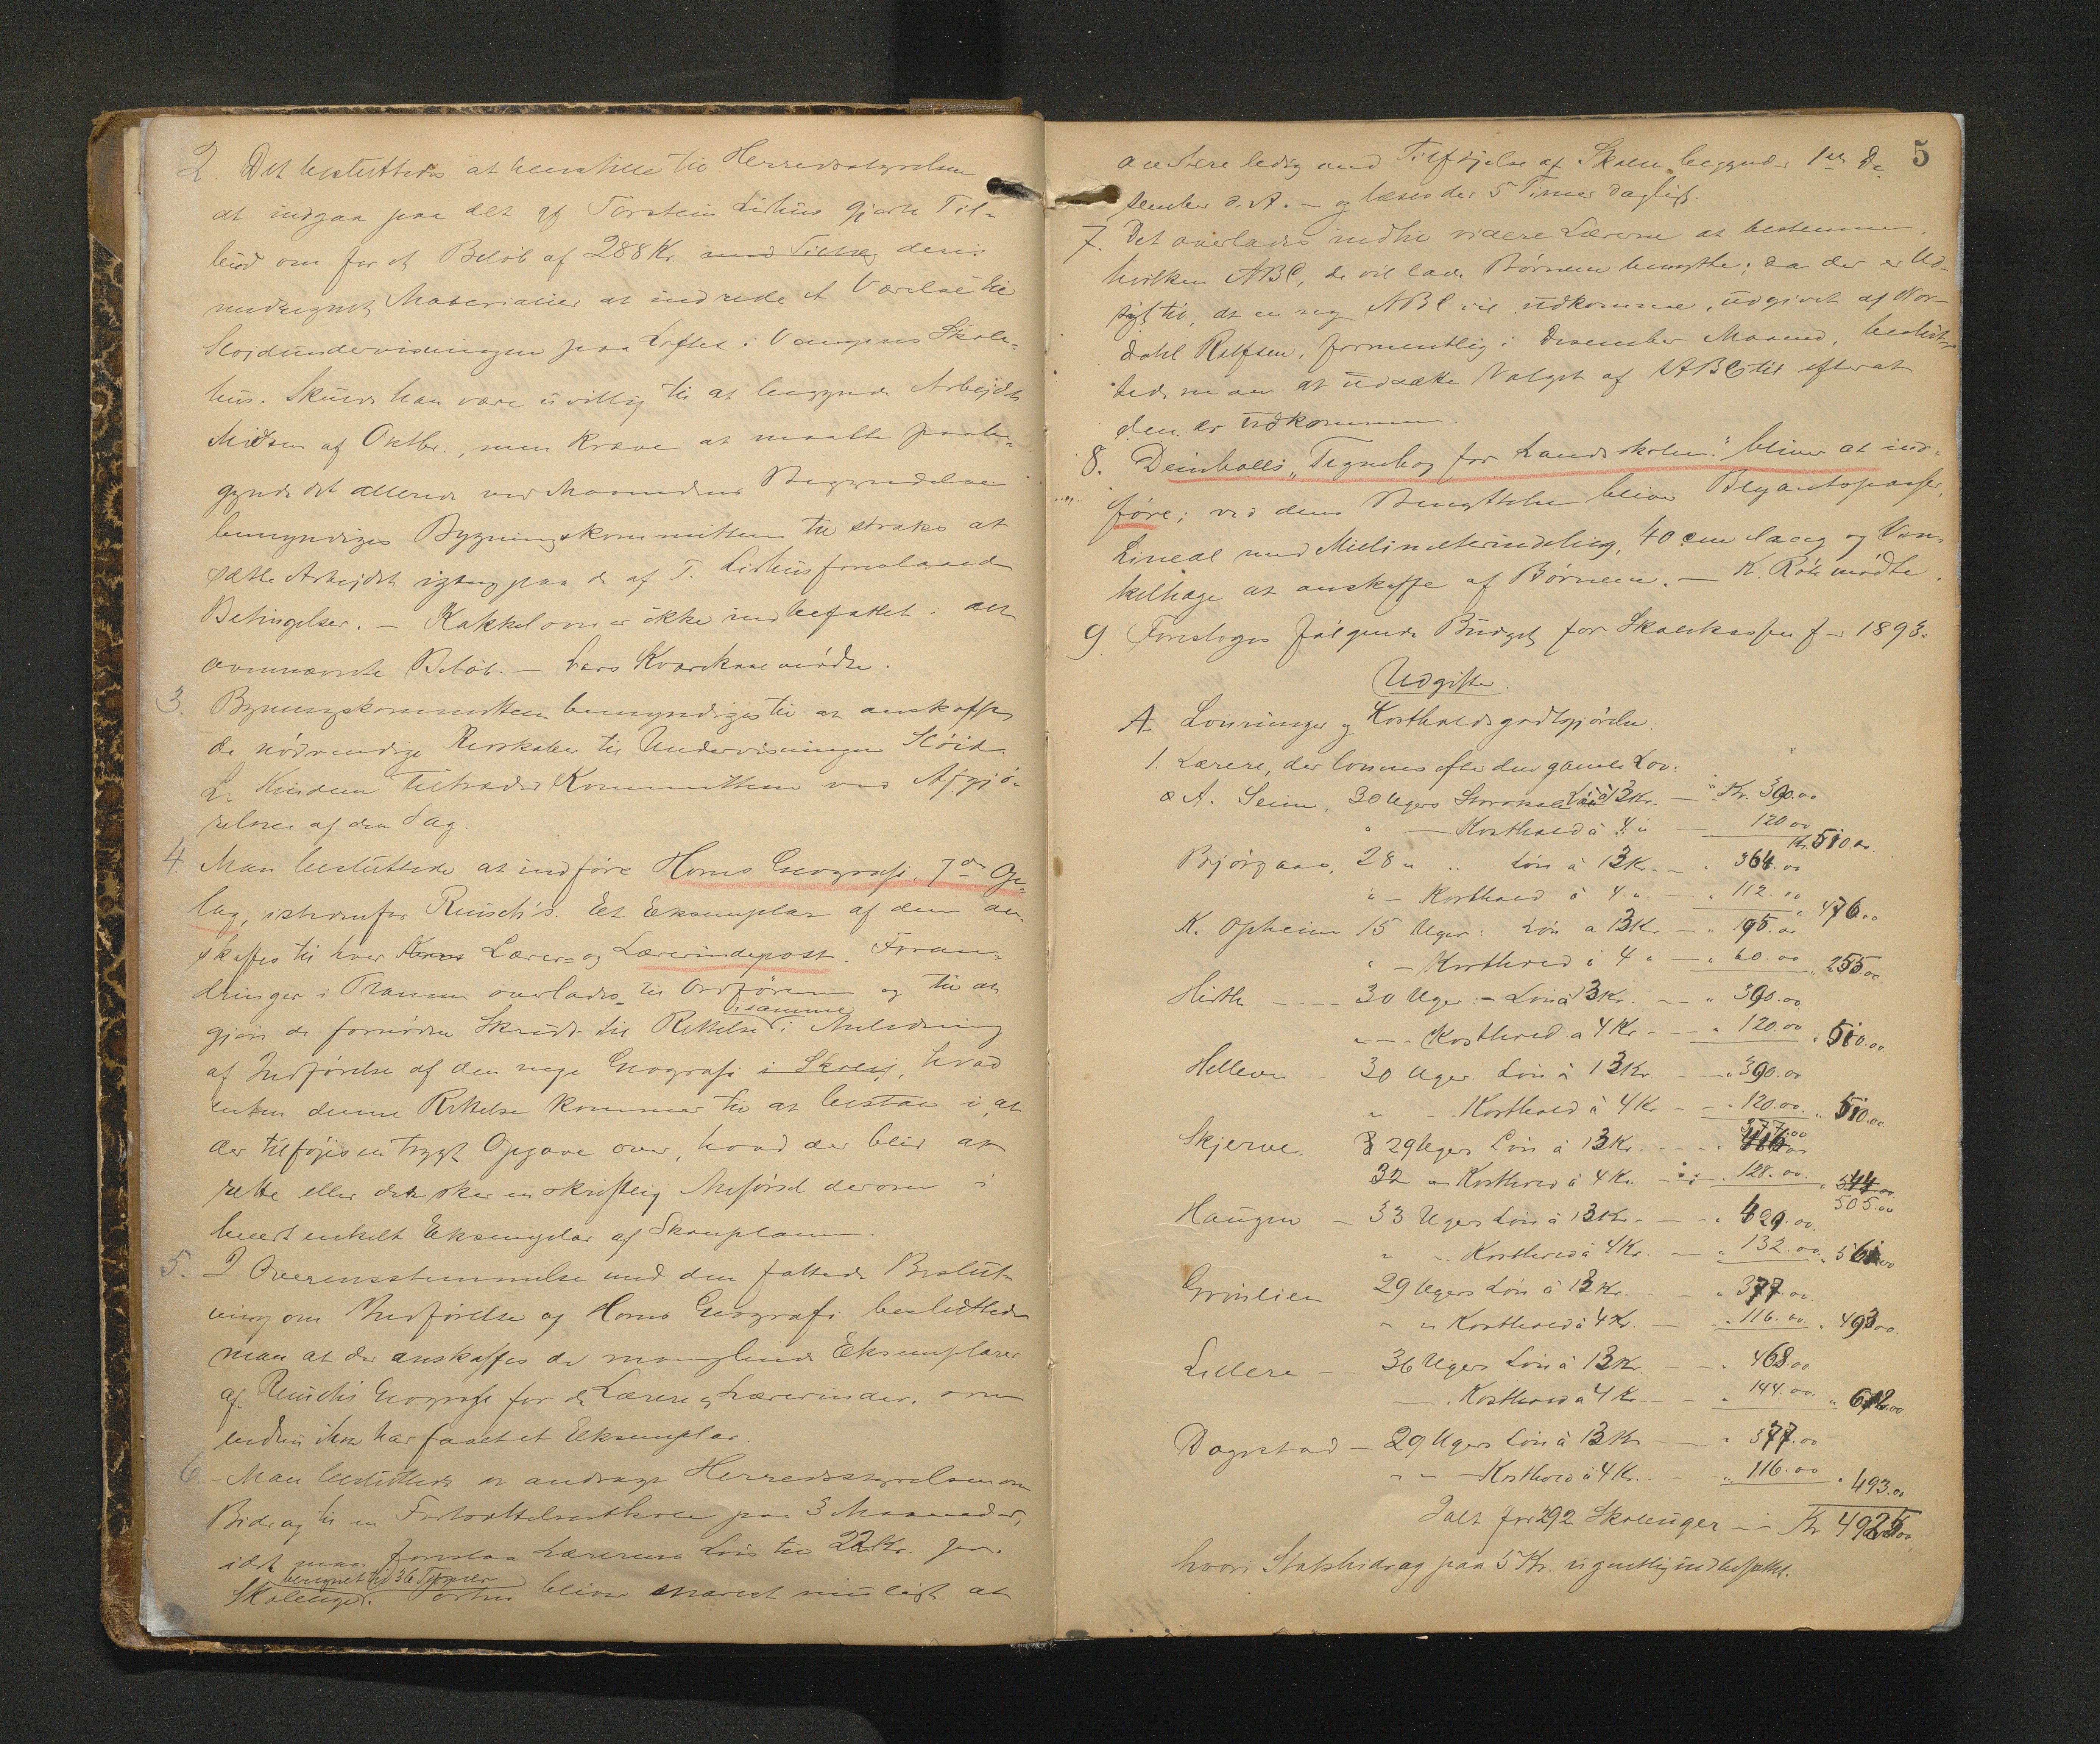 2. Det besluttedes at henstille til Herredsstyrelsen
at indgaa paa det af Torstein Lirhus gjorte Til-
bud om for et Beløb af 288 Kr. med Tillæg deri
medregnet Materialier at indrede et Værelse til
Sløidundervisningen paa Loftet i Vangens Skole-
hus. Skulde han være uvillig til at begynde Arbejdet
Midten af Oktbr., men kræve at maatte paabe-
gynde det allerede ved Maanedens Begyndelse
bemyndiges Bygningskommitteen til straks at
sætte Arbejdet igang paa de af T. Lirhus foreslaaede
Betingelser. — Kakkelovn er ikke indbefattet i det
ovennævnte Beløb. — Lars Kvarekaal mødte.
3. Bygningskommitteen bemyndiges til at anskaffe
de nødvendige Redskaber til Undervisningen Sløid.
L. Kindem tiltræder Kommitteen ved Afgjø-
relsen af den Sag.
4. Man besluttede at indføre Horns Geografi, 7de Op-
lag, istedenfor Reusch's. Et Eksemplar af dem an-
skaffes til hver Lærer- og Lærerindepost. Foran-
dringer i Planen overlades til Ordføreren og til at
gjøre de fornødne Skridt til Rettelse i samme i Anledning
af Indførelse af den nye Geografi i Skolen, hvad
enten denne Rettelse kommer til at bestaa i, at
der tilføjes en trygt Opgave over, hvad der blir at
rette eller der sker en skriftlig Anførsel derom i
hvert enkelt Eksemplar af Skoleplanen.
5. I Overensstemmelse med den fattede Beslut-
ning om Indførelse af Horns Geografi besluttede
man at der anskaffes de manglende Eksemplarer
af Reusch's Geografi for de Lærere og Lærerinder, som
endnu ikke har faaet et Eksemplar.
6 - Man besluttede at andrage Herredsstyrelsen om
Bidrag til en Fortsættelsesskole paa 3 Maaneder,
idet man foreslaar Lærerens Løn til 22 Kr. pr.
Skoleuge beregnet til 36 Timer. Posten bliver snarest muligt at
5
avertere ledig med Tilføjelse af Skolen begynder 1ste De
sember d. A. — og læses der 5 Timer daglig.
7. Det overlades indtil videre Lærerne at bestemme,
hvilken ABC, de vil lade Børnene benytte; da der er Ud-
sigt til, at en ny ABC vil udkomme, udgivet af Nor-
dahl Rolfsen, formentlig i Desember Maaned, beslut-
tede man at udsætte Valget af ABC til efterat
den er udkommen.
8. Deinbolls „Tegnebog for Landsskolen" bliver at ind-
føre; ved dens Benyttelse bliver Blyantspasser,
Lineal med Millimeterindeling, 40 cm lang og Vin-
kelhage at anskaffe af Børnene. — K. Röte mødte.
9. Foresloges følgende Budget for Skolekassen f- 1893.
Udgifter.
A Lønninger og Kostholdsgodtgjørelse.
1. Lærere, der lønnes efter den gamle Lov.
a A. Seim, 30 Ugers Løn à 13 Kr. — Kr. 390.00
" — Kosthold à 4 " — 120 00 Kr. 510.00
Bjørgaas, 28 " " Løn à 13 Kr. — " 364.00
" — Kosthold à 4 " — " 112.00 " 476.00
K. Opheim 15 Uger: Løn a 13 Kr — " 195.00
" — Kosthold à 4 " — " 60.00 " 255.00
Hirth — 30 Uger: — Løn à 13 Kr. — " 390.00
" — Kosthold a 4 Kr — " 120.00 " 510.00
Helleve — 30 Uger. Løn à 13 Kr. — " 390.00
" — Kosthold à 4 Kr — " 120.00 " 510.00
377.00
Skjerve. 29 Ugers Løn à 13 Kr. — " 416.00
32 " Kosthold à 4 Kr. — " 128.00 " 544.00
505.00
Haugen — 33 Ugers Løn à 13 Kr. — " 429.00
" " Kosthold à 4 Kr. — " 132.00 " 561.00
Grønlien 29 Ugers Løn à 13 Kr. — " 377.00
" " Kosthold à 4 Kr. — " 116.00 " 493.00
Lillere — 36 Ugers Løn à 13 Kr. — " 468.00
— Kosthold à 4 Kr — " 144.00 " 612.00
Dagestad — 29 Ugers Løn à 13 Kr — " 377.00
" " — Kosthold à 4 Kr. — " 116.00 " 493.00
Ialt for 292 Skoleuger — Kr 4925.00
hvori Statsbidrag paa 5 Kr. ugentlig indbefattet.